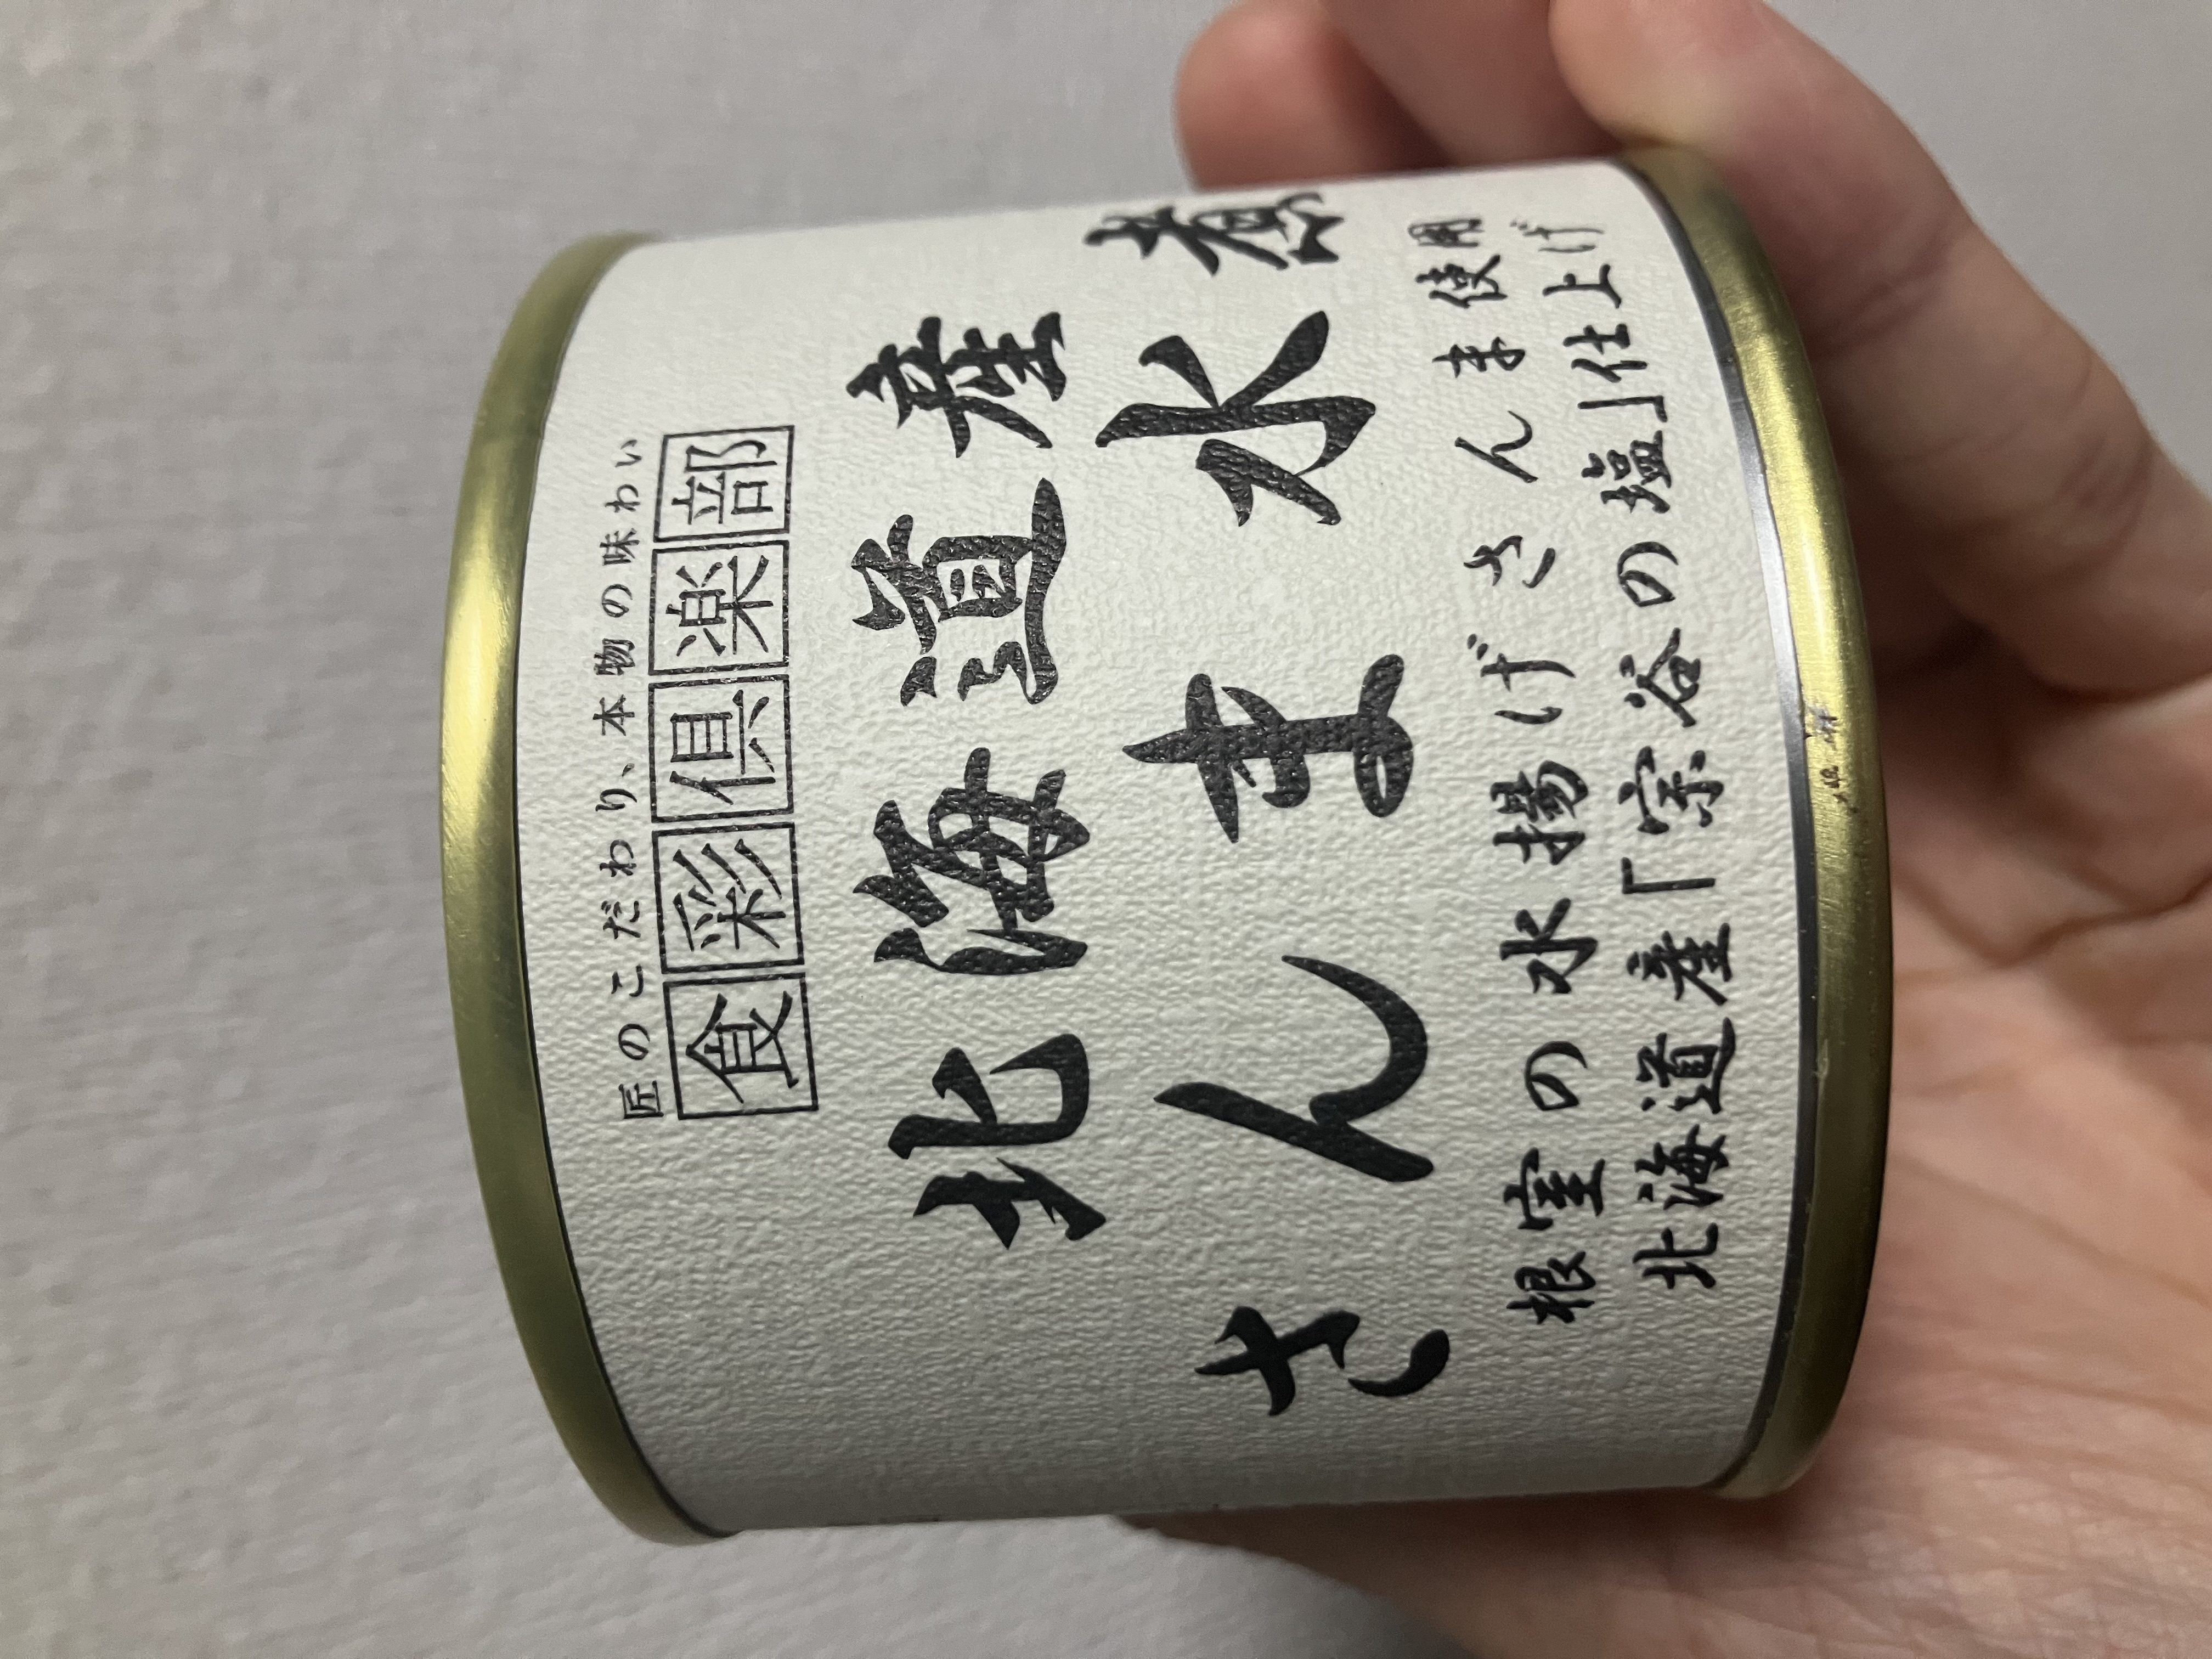 匠のこだわり、本物の味わい
食彩倶楽部
北海道産
さんま水煮
根室の水揚げさんま使用
北海道産「宗谷の塩」仕上げ